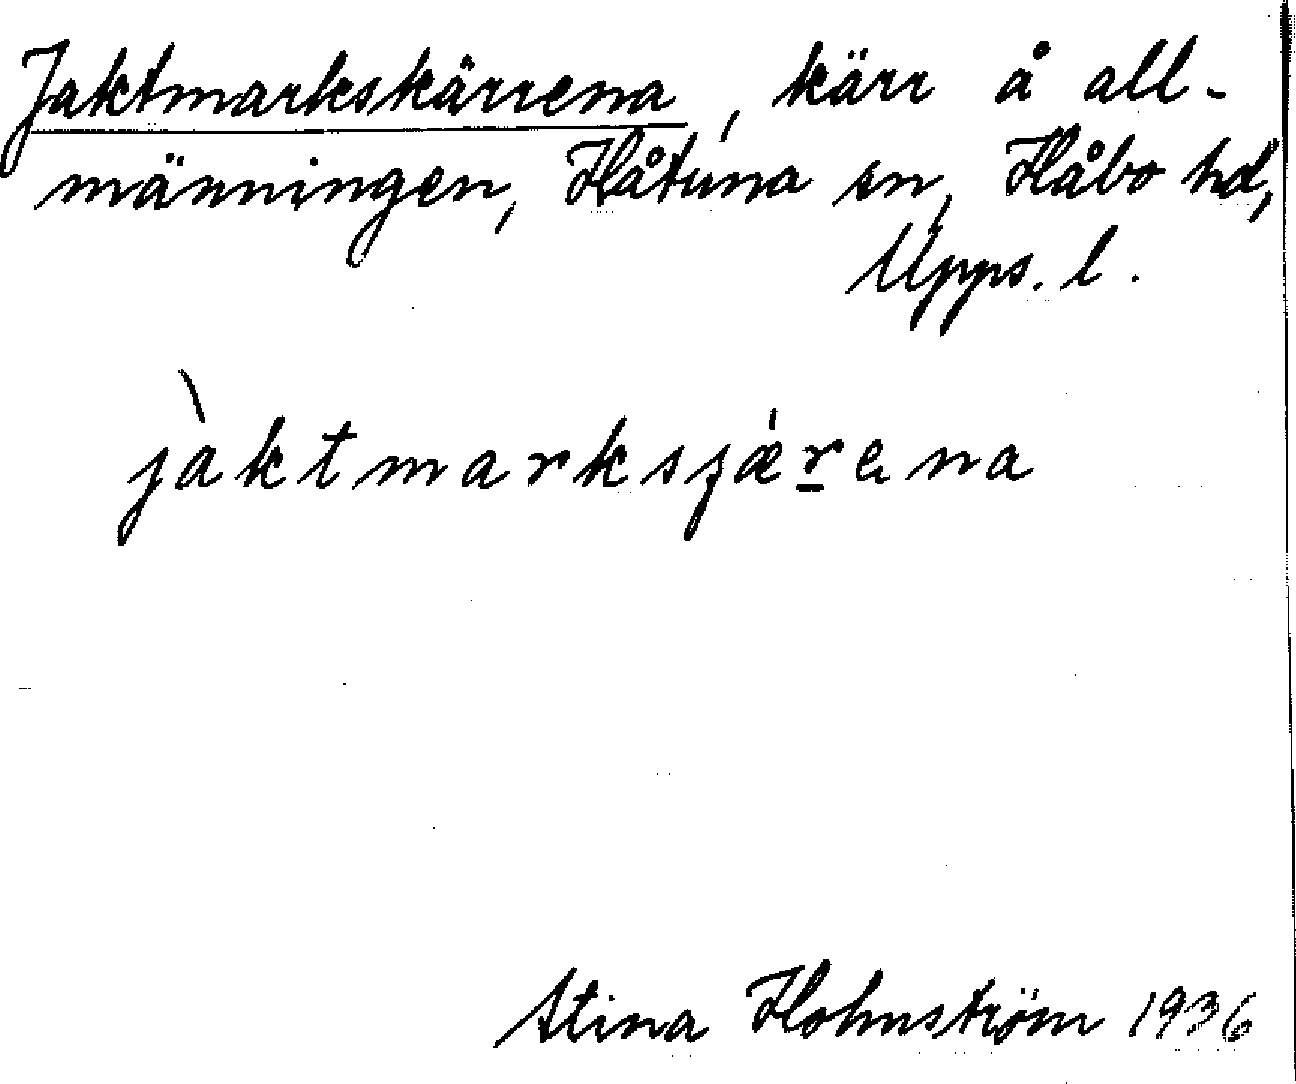 Jaktmarkskärrena, kärr å all-
männingen, Håtuna sn, Håbo hd,
Upps. l.
jàktmarksjæ̀rena
Stina Hohnström 1936